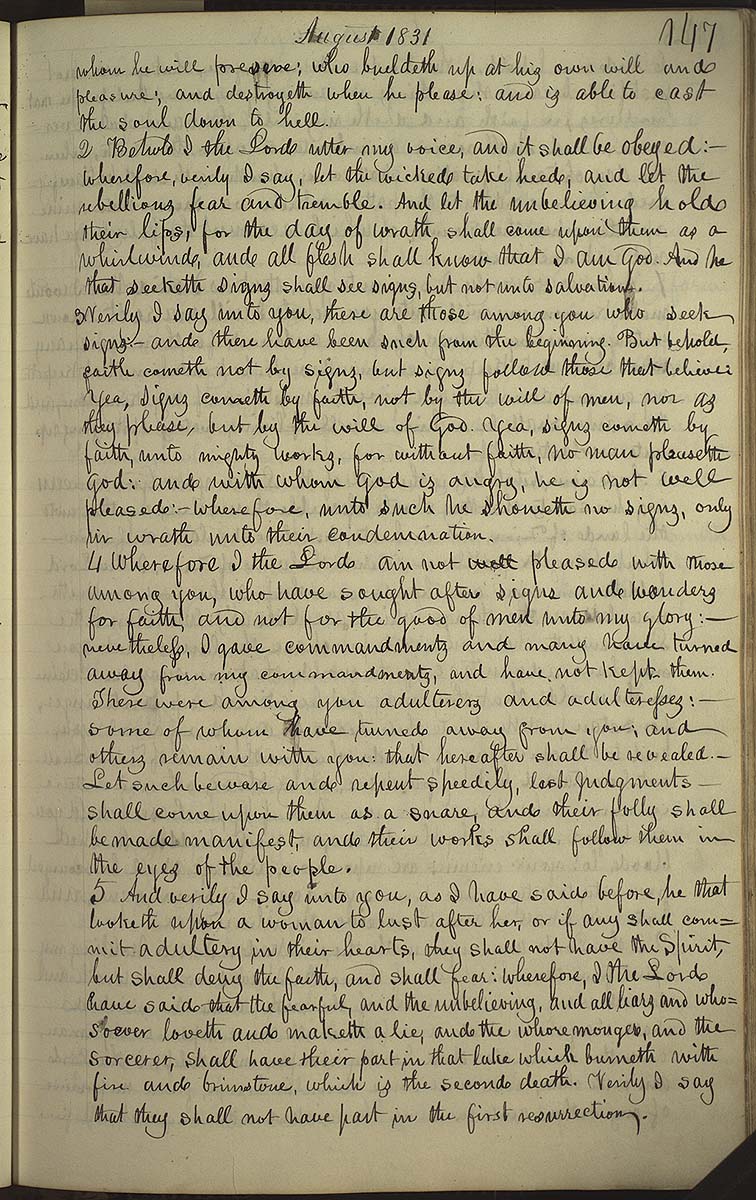 August 1831
147
whom he will preserve; who buildeth up at his own will and
pleasure; and destroyeth when he please: and is able to cast
the soul down to hell.
2 Behold I the Lord utter my voice, and it shall be obeyed:—
wherefore, verily I say, let the wicked take heed, and let the
rebellious fear and tremble. And let the unbelieving hold
their lips, for the day of wrath shall come upon them as a
whirlwind, and all flesh shall know that I am God. And he
that seeketh signs shall see signs, but not unto salvation.
3 Verily I say unto you, there are those among you who seek
signs:— and there have been such from the beginning. But behold,
faith cometh not by signs, but signs follow those that believe:
Yea, signs cometh by faith, not by the will of men, nor as
they please, but by the will of God. Yea, signs cometh by
faith, unto mighty works, for without faith, no man pleaseth
God: and with whom God is angry, he is not well
pleased:— wherefore, unto such he showeth no signs, only
in wrath unto their condemnation.
4 Wherefore I the Lord am not well pleased with those
among you, who have sought after signs and wonders
for faith, and not for the good of men unto my glory:—
nevertheless, I gave commandments and many have turned
away from my commandments, and have not kept them.
There were among you adulterers and adulteresses:—
some of whom have turned away from you; and
others remain with you: that hereafter shall be revealed.—
Let such beware and repent speedily, lest judgments—
shall come upon them as a snare, and their folly shall
be made manifest, and their works shall follow them in
the eyes of the people.
5 And verily I say unto you, as I have said before, he that
looketh upon a woman to lust after her, or if any shall com=
mit adultery in their hearts, they shall not have the Spirit,
but shall deny the faith, and shall fear: wherefore, I the Lord
have said that the fearful, and the unbelieving, and all liars and who=
soever loveth and maketh a lie, and the whoremonger, and the
sorcerer, shall have their part in that lake which burneth with
fire and brimstone, which is the second death. Verily I say
that they shall not have part in the first resurrection.